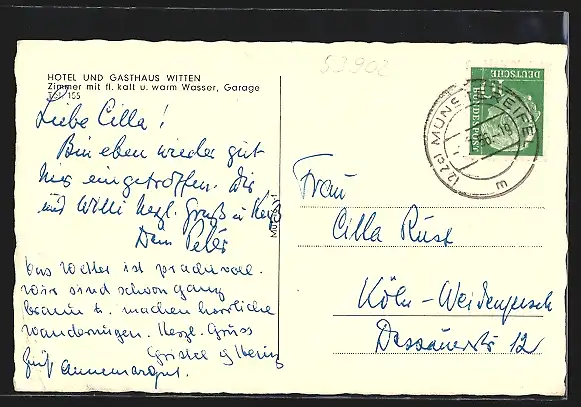 HOTEL UND GASTHAUS WITTEN
Zimmer mit fl. kalt u. warm Wasser, Garage
Tel. 155
53902
Liebe Cilla!
Bin eben wieder gut
hier eingetroffen. Dir
und Willi herzl. Gruß u. Kuß
Dein Peter
Das Wetter ist prachtvoll.
Wir sind schon ganz
braun u. machen herrliche
Wanderungen. Herzl. Gruss
Gristel u Heinz
Gruß Annemargret.
DEUTSCHE
BUNDESPOST
10
(22c) MÜNSTEREIFEL
Frau
Cilla Rüst
Köln-Weidenpesch
Dessauerstr 12